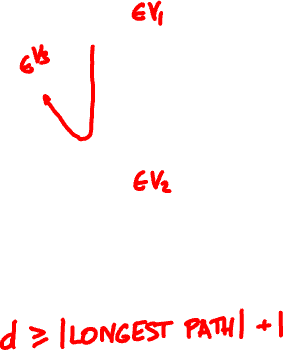 ∈V₁
∈V₃
∈V₂
d ≥ |LONGEST PATH| + 1